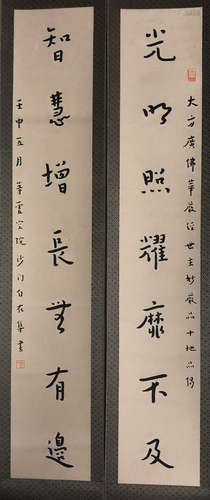 大方廣佛華嚴經世主妙嚴品十地品偈
光明照耀靡不及
智慧增長無有邊
壬申五月 沙門 集書